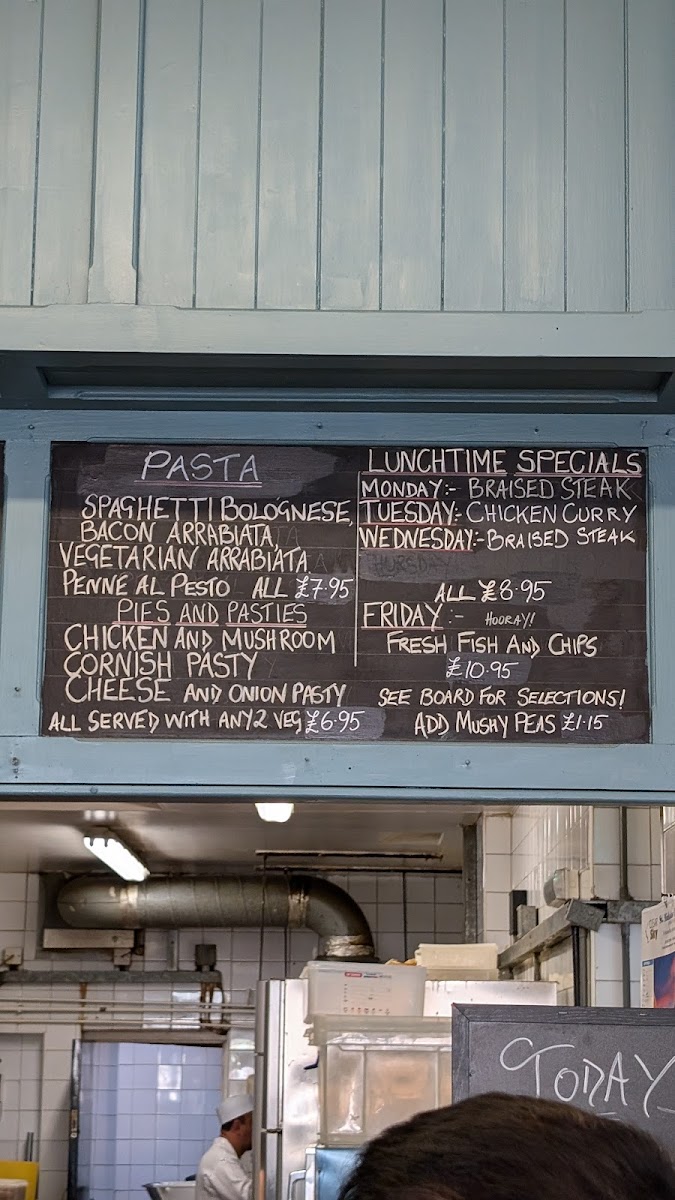 PASTA
SPAGHETTI BOLOGNESE,
BACON ARRABIATA,
VEGETARIAN ARRABIATA
PENNE AL PESTO ALL £7.95
PIES AND PASTIES
CHICKEN AND MUSHROOM
CORNISH PASTY
CHEESE AND ONION PASTY
ALL SERVED WITH ANY 2 VEG £6.95
LUNCHTIME SPECIALS
MONDAY:- BRAISED STEAK
TUESDAY:- CHICKEN CURRY
WEDNESDAY:- BRAISED STEAK
THURSDAY
ALL £8.95
FRIDAY:- HOORAY!
FRESH FISH AND CHIPS
£10.95
SEE BOARD FOR SELECTIONS!
ADD MUSHY PEAS £1.15
TODAY